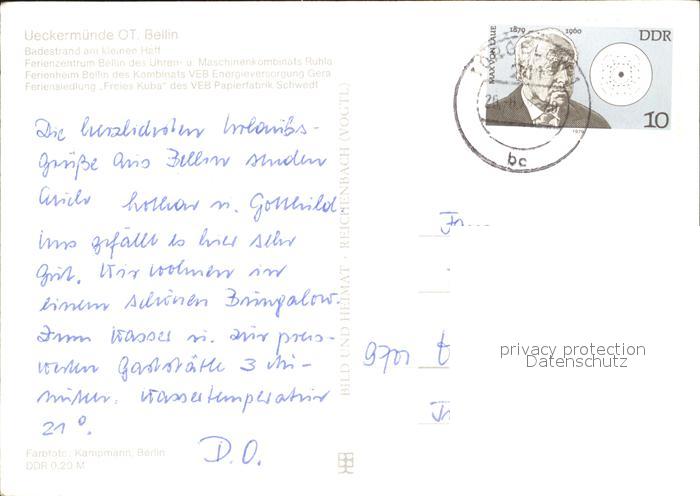 Ueckermünde OT. Bellin
Badestrand am kleinen Haff
Ferienzentrum Bellin des Uhren- u. Maschinenkombinats Ruhla
Ferienheim Bellin des Kombinats VEB Energieversorgung Gera
Feriensiedlung „Freies Kuba" des VEB Papierfabrik Schwedt
MAX VON LAUE
1879 1960
DDR
10
1979
bc
Die herzlichsten Urlaubs-
grüße aus Bellin senden
Euch Lothar u. Gotthild.
Uns gefällt es hier sehr
gut. Wir wohnen in
einem schönen Bungalow.
Zum Wasser u. zur preis-
werten Gaststätte 3 Mi-
nuten. Wassertemperatur
21°.
D.O.
BILD UND HEIMAT · REICHENBACH (VOGTL)
9701
privacy protection
Datenschutz
Farbfoto, Kampmann, Berlin
DDR 0,20 M